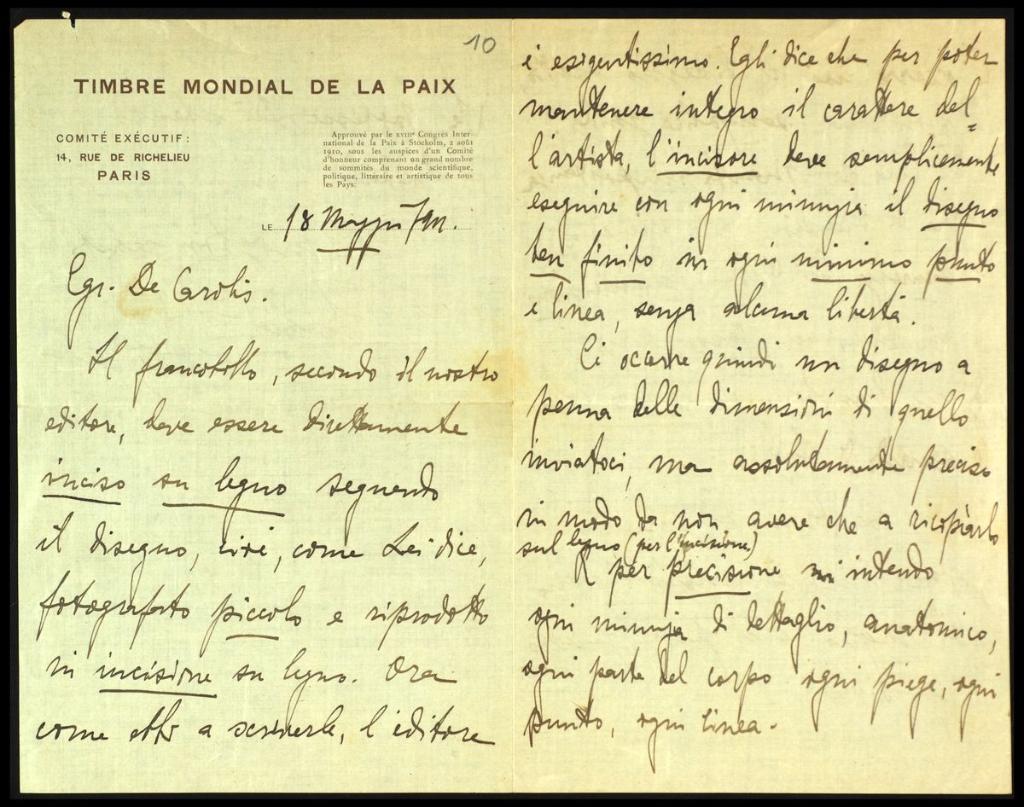 10
TIMBRE MONDIAL DE LA PAIX
COMITÉ EXÉCUTIF:
14, RUE DE RICHELIEU
PARIS
Approuvé par le XVIIIe Congrès Inter-
national de la Paix à Stockolm, 2 août
1910, sous les auspices d'un Comité
d'honneur comprenant un grand nombre
de sommités du monde scientifique,
politique, littéraire et artistique de tous
les Pays.
LE 18 Maggio 1911.
Egr. De Carolis.
Il francobollo, secondo il nostro
editore, deve essere direttamente
inciso su legno seguendo
il disegno, cioè, come Lei dice,
fotografato piccolo e riprodotto
in incisione su legno. Ora
come ebbi a scriverle, l'editore
è esigentissimo. Egli dice che per poter
mantenere integro il carattere del=
l'artista, l'incisore deve semplicemente
eseguire con ogni minuzia il disegno
ben finito in ogni minimo punto
e linea, senza alcuna libertà.
Ci occorre quindi un disegno a
penna delle dimensioni di quello
inviatoci, ma assolutamente preciso
in modo da non avere che a ricopiarlo
sul legno (per l'incisione)
E per precisione mi intendo
ogni minuzia di dettaglio, anatomico,
ogni parte del corpo ogni piega, ogni
punto, ogni linea.